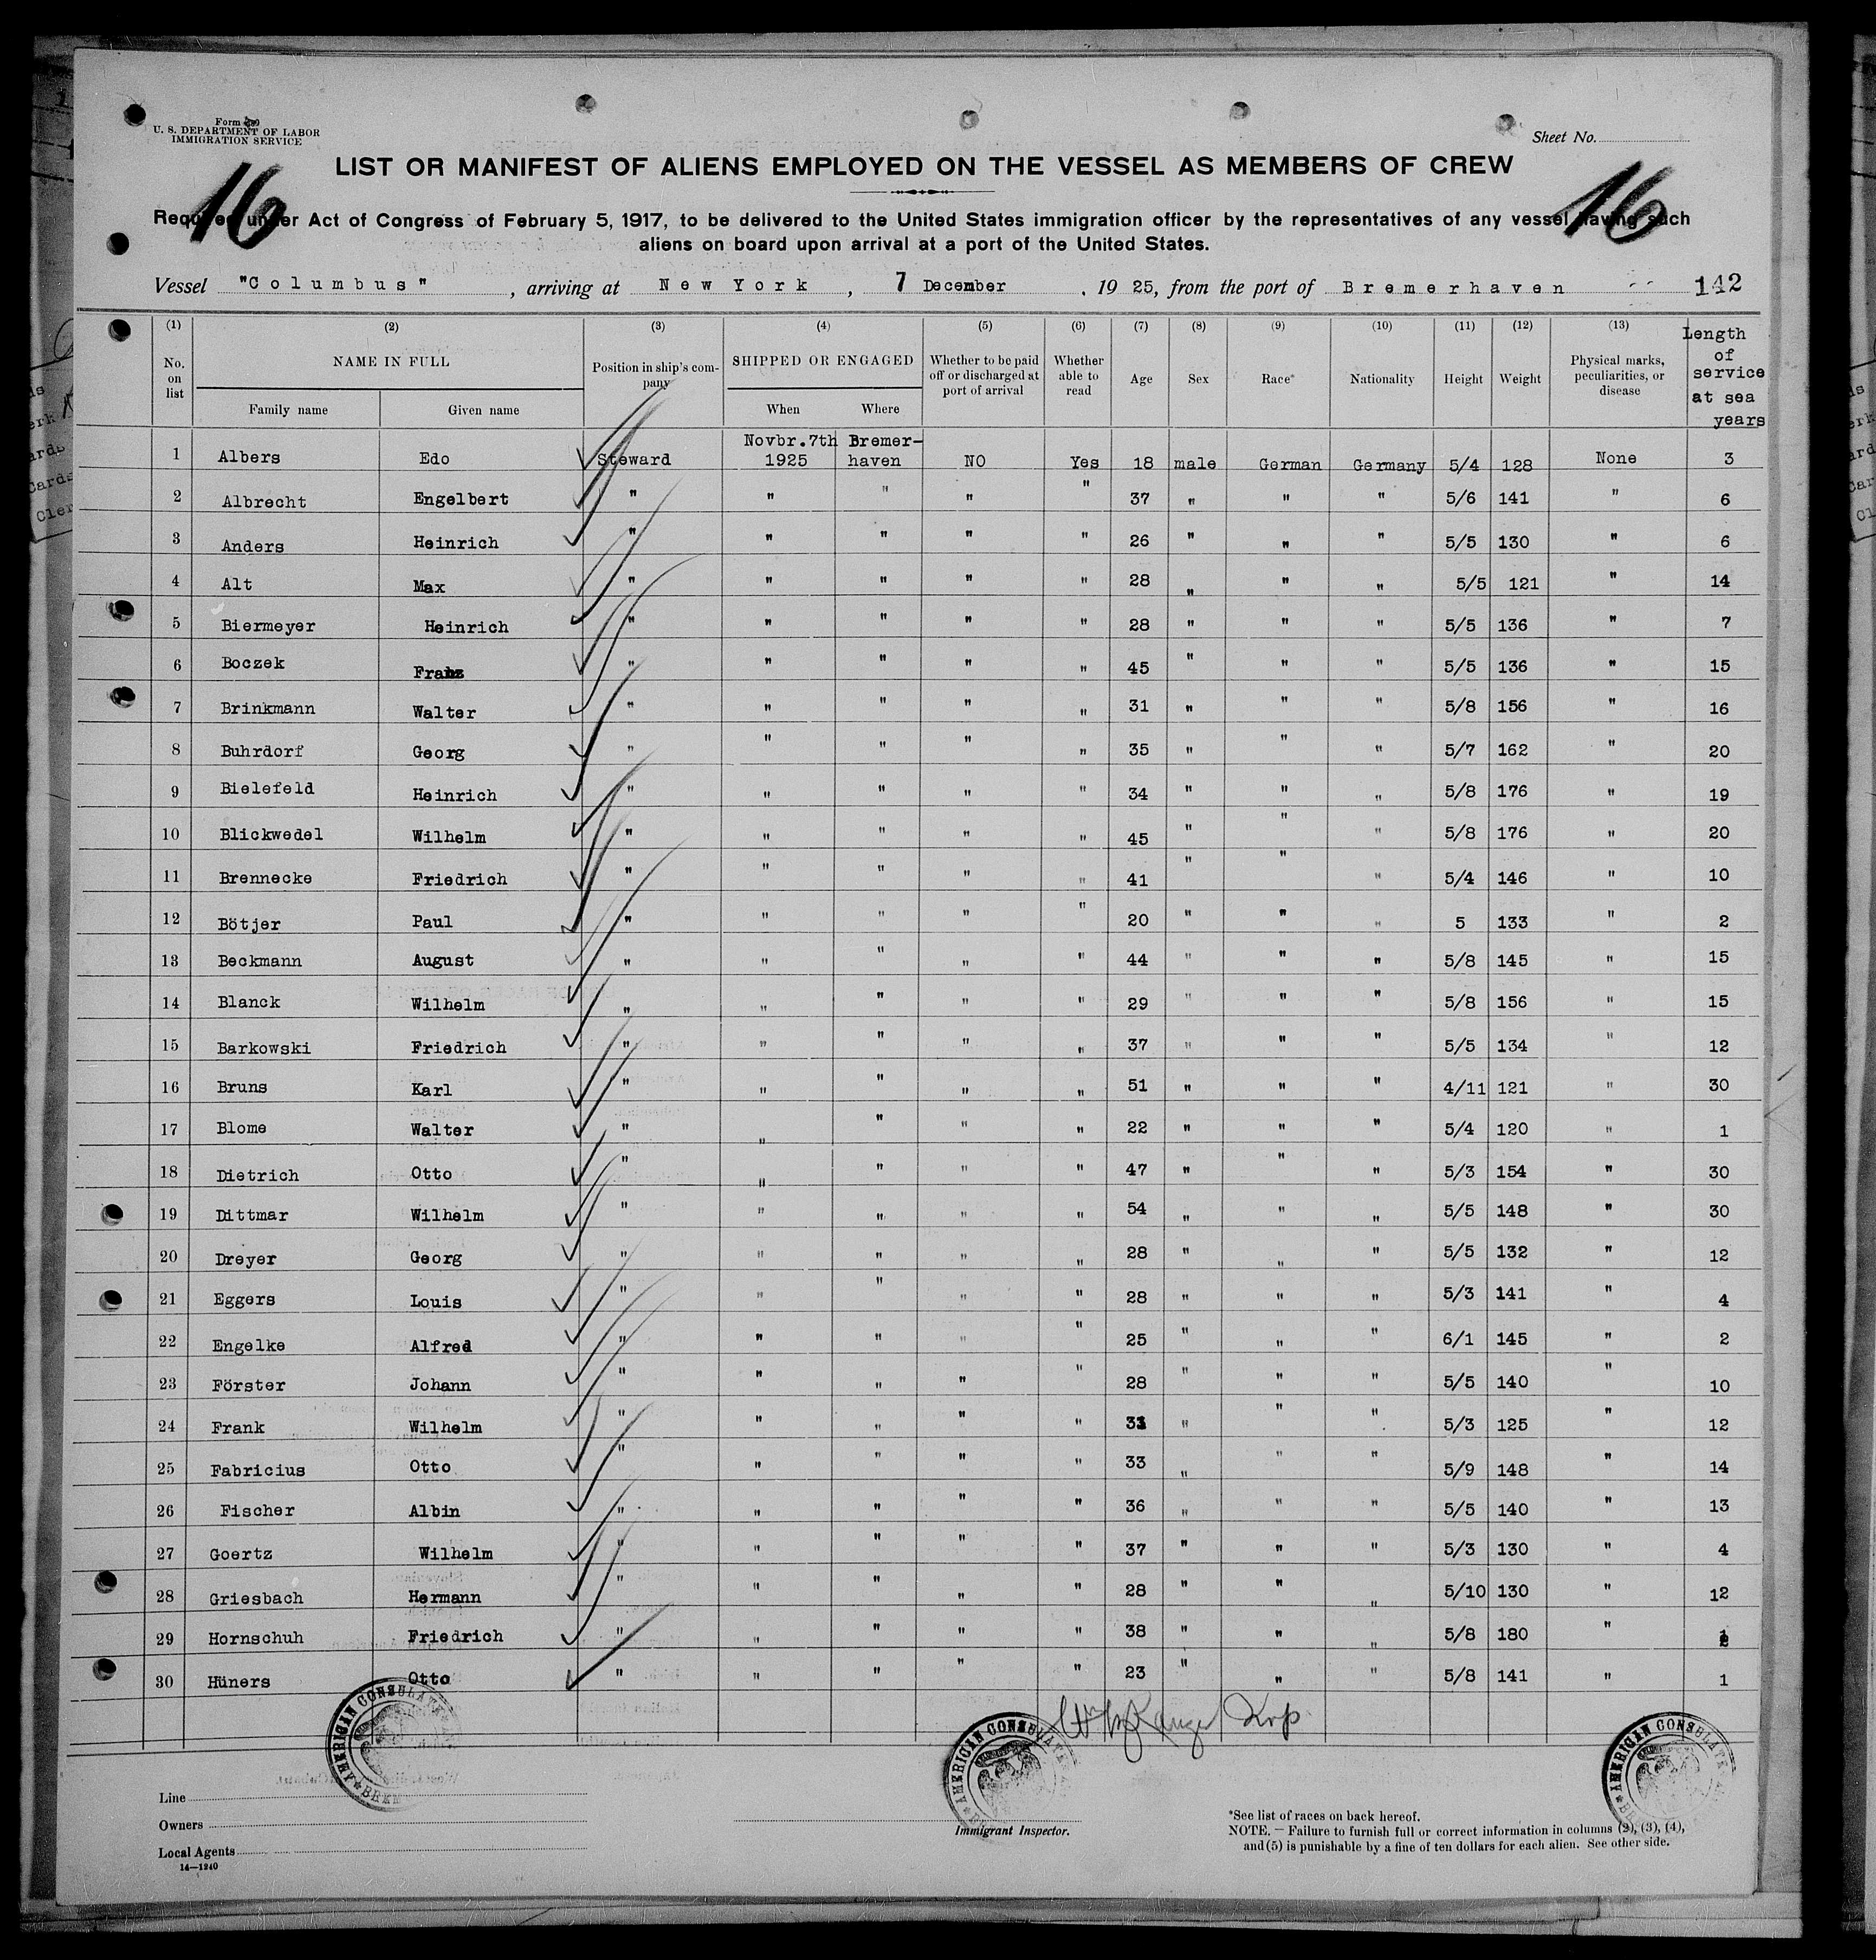 Form
U. S. DEPARTMENT OF LABOR
IMMIGRATION SERVICE
Sheet No.
16
16
LIST OR MANIFEST OF ALIENS EMPLOYED ON THE VESSEL AS MEMBERS OF CREW
Required under Act of Congress of February 5, 1917, to be delivered to the United States immigration officer by the representatives of any vessel having such
aliens on board upon arrival at a port of the United States.
Vessel "Columbus", arriving at New York, 7 December, 1925, from the port of Bremerhaven 142
(1) (2) (3) (4) (5) (6) (7) (8) (9) (10) (11) (12) (13)
No. on list NAME IN FULL Family name Given name Position in ship's company SHIPPED OR ENGAGED When Where Whether to be paid off or discharged at port of arrival Whether able to read Age Sex Race* Nationality Height Weight Physical marks, peculiarities, or disease Length of service at sea years
1 Albers Edo Steward Novbr.7th 1925 Bremer-haven NO Yes 18 male German Germany 5/4 128 None 3
2 Albrecht Engelbert " " " " " 37 " " " 5/6 141 " 6
3 Anders Heinrich " " " " " 26 " " " 5/5 130 " 6
4 Alt Max " " " " " 28 " " " 5/5 121 " 14
5 Biermeyer Heinrich " " " " " 28 " " " 5/5 136 " 7
6 Boczek Franz " " " " " 45 " " " 5/5 136 " 15
7 Brinkmann Walter " " " " " 31 " " " 5/8 156 " 16
8 Buhrdorf Georg " " " " " 35 " " " 5/7 162 " 20
9 Bielefeld Heinrich " " " " " 34 " " " 5/8 176 " 19
10 Blickwedel Wilhelm " " " " " 45 " " " 5/8 176 " 20
11 Brennecke Friedrich " " " " " 41 " " " 5/4 146 " 10
12 Bötjer Paul " " " " " 20 " " " 5 133 " 2
13 Beckmann August " " " " " 44 " " " 5/8 145 " 15
14 Blanck Wilhelm " " " " " 29 " " " 5/8 156 " 15
15 Barkowski Friedrich " " " " " 37 " " " 5/5 134 " 12
16 Bruns Karl " " " " " 51 " " " 4/11 121 " 30
17 Blome Walter " " " " " 22 " " " 5/4 120 " 1
18 Dietrich Otto " " " " " 47 " " " 5/3 154 " 30
19 Dittmar Wilhelm " " " " " 54 " " " 5/5 148 " 30
20 Dreyer Georg " " " " " 28 " " " 5/5 132 " 12
21 Eggers Louis " " " " " 28 " " " 5/3 141 " 4
22 Engelke Alfred " " " " " 25 " " " 6/1 145 " 2
23 Förster Johann " " " " " 28 " " " 5/5 140 " 10
24 Frank Wilhelm " " " " " " " " 5/3 125 " 12
25 Fabricius Otto " " " " " 33 " " " 5/9 148 " 14
26 Fischer Albin " " " " " 36 " " " 5/5 140 " 13
27 Goertz Wilhelm " " " " " 37 " " " 5/3 130 " 4
28 Griesbach Hermann " " " " " 28 " " " 5/10 130 " 12
29 Hornschuh Friedrich " " " " " 38 " " " 5/8 180 "
30 Hüners Otto " " " " " 23 " " " 5/8 141 " 1
AMERICAN CONSULATE
AMERICAN CONSULATE
AMERICAN CONSULATE
Line
Owners
Local Agents
14—1240
Immigrant Inspector.
*See list of races on back hereof.
NOTE. — Failure to furnish full or correct information in columns (2), (3), (4),
and (5) is punishable by a fine of ten dollars for each alien. See other side.